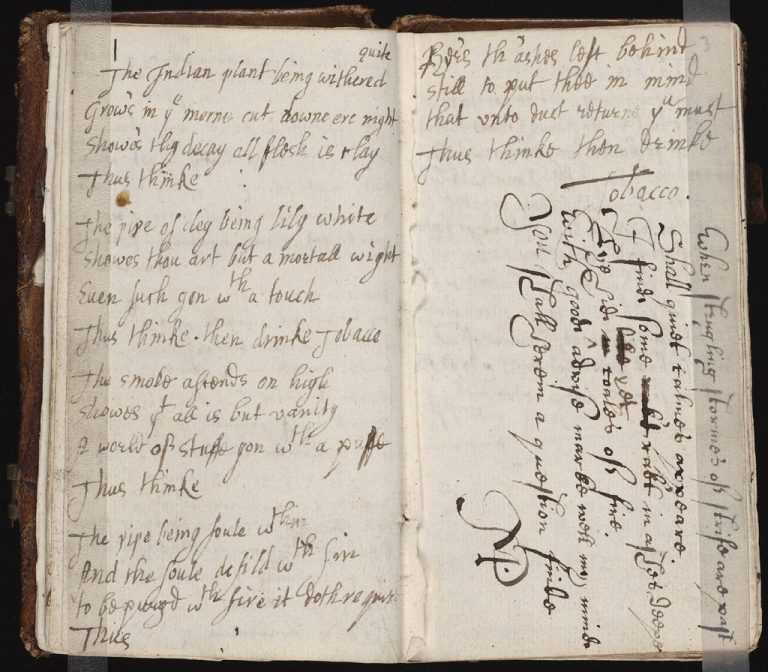 1
quite
The Indian plant being withered
Grow's in yͤ morne cut downe ere night
Showes thy decay all flesh is clay
Thus thinke
The pipe of cley being lily white
Showes thou art but a mortall wight
Even such gon wᵗʰ a touch
Thus thinke. then drinke Tobacco
The smoke assends on high
Showes yᵗ all is but vanity
A world of stuffe gon wᵗʰ a puffe
Thus thinke
The pipe being foule wᵗʰin
And the soule defild wᵗʰ sin
to be purged wᵗʰ fire it doth requir.
Thus
3
Her's th'ashes left behind
still to put thee in mind
that vnto dust returne yᵘ must
Thus thinke then drinke
Tobacco.
When strugling stormes of strife are past
Shall quiet calmes appeare.
I finde some in ashes deepe
coales of fire.
With good advise marke well my minde
You shall herein a question finde